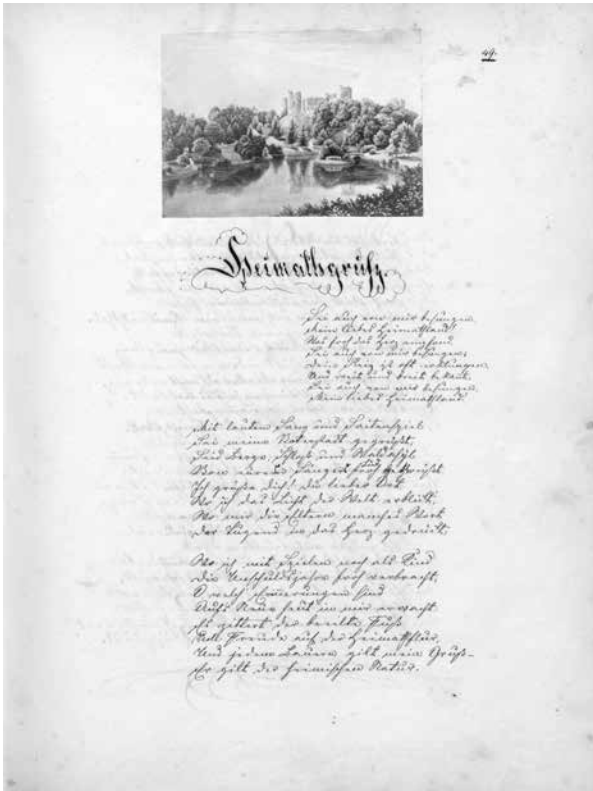 49.
Heimathsgruß.
Sei auch von mir besungen
Mein liebes Heimathland!
Was hoch das Herz empfand
Sei auch von mir besungen;
Dein Preis ist oft erklungen
Und weit und breit bekannt,
Sei auch von mir besungen
Mein liebes Heimathland.
Mit lautem Sang und Saitenspiel
Sei meine Vaterstadt gegrüßt,
Sind Berge, Schloß und
Von eurem Sänger froh
Ich grüße dich! du lieber Ort
Wo ich das Licht der Welt erblickt.
Wo mir die Eltern manches Wort
Der Tugend in das Herz gedrückt;
Wo ich mit Spielen noch als Kind
Die Unschuldsjahre froh verbracht,
O welch Erinnerungen sind
Aufs Neue heut in mir erwacht
Es zittert der Fuß
Vor Freude auf der Heimathflur,
Und jedem gilt mein Gruß—
Er gilt der heimischen Natur.